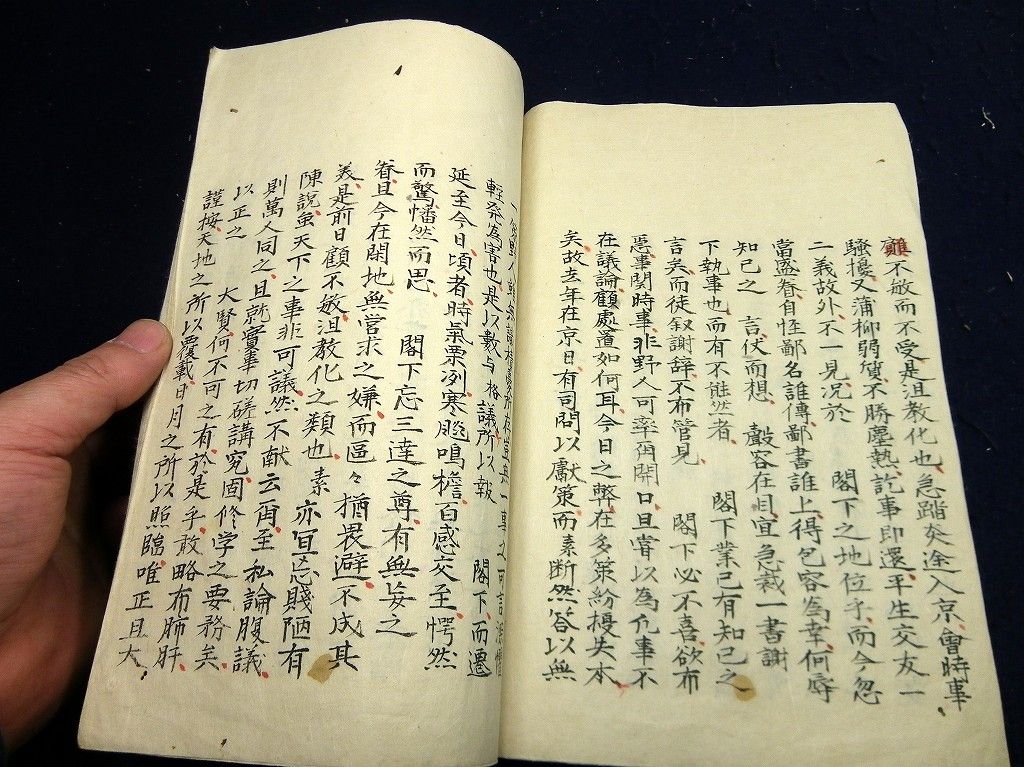 雖不敏而不受是沮教化也急踏炎途入京會時事
騷擾又蒲柳弱質不勝塵熱訖事即還平生交友一
二義故外不一見況於 閣下之地位乎而今忽
當盛眷自怪鄙名誰傳鄙書誰上得包容為幸何辱
知己之 言伏而想 聲容在目宜急裁一書謝
下執事也而有不能然者 閣下業已有知己之
言矣而徒叙謝辞不布管見 閣下必不喜欲布
惡事関時事非野人可率尓開口且嘗以為凡事不
在議論顧處置如何耳今日之弊在多策紛擾失本
矣故去年在京日有司問以獻策而素断然答以無
一
輕發為害也是以數与格議所以報 閣下而遷
延至今日頃者時氣栗冽寒飈鳴檐百感交至愕然
而驚幡然而思 閣下忘三達之尊有無妄之
眷且今在閑地無當求之嫌而區々猶畏避不成其
美是前日顧不敏沮教化之類也素 亦宜忘賤陋有
陳說虽天下之事非可議然不献云爾至私論腹議
則萬人同之且就實事切磋講究固修学之要務矣
以正之 大賢何不可之有於是乎敢略布肺肝
謹按天地之所以覆載日月之所以照臨唯正且大